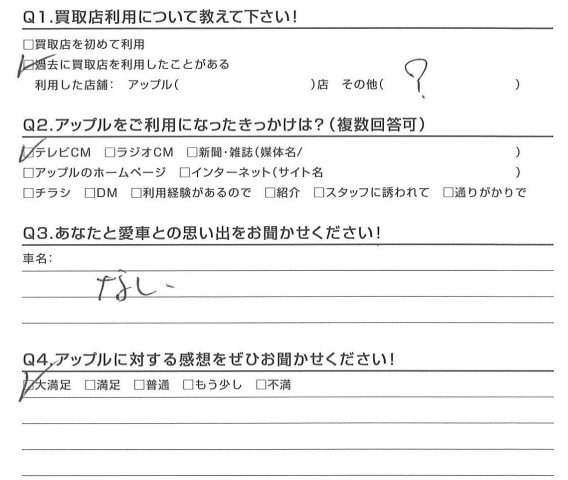 Q1.買取店利用について教えて下さい!
□買取店を初めて利用
☑過去に買取店を利用したことがある
利用した店舗: アップル( )店 その他( ? )
Q2.アップルをご利用になったきっかけは?(複数回答可)
☑テレビCM □ラジオCM □新聞・雑誌(媒体名/ )
□アップルのホームページ □インターネット(サイト名 )
□チラシ □DM □利用経験があるので □紹介 □スタッフに誘われて □通りがかりで
Q3.あなたと愛車との思い出をお聞かせください!
車名:
なし.
Q4.アップルに対する感想をぜひお聞かせください!
☑大満足 □満足 □普通 □もう少し □不満